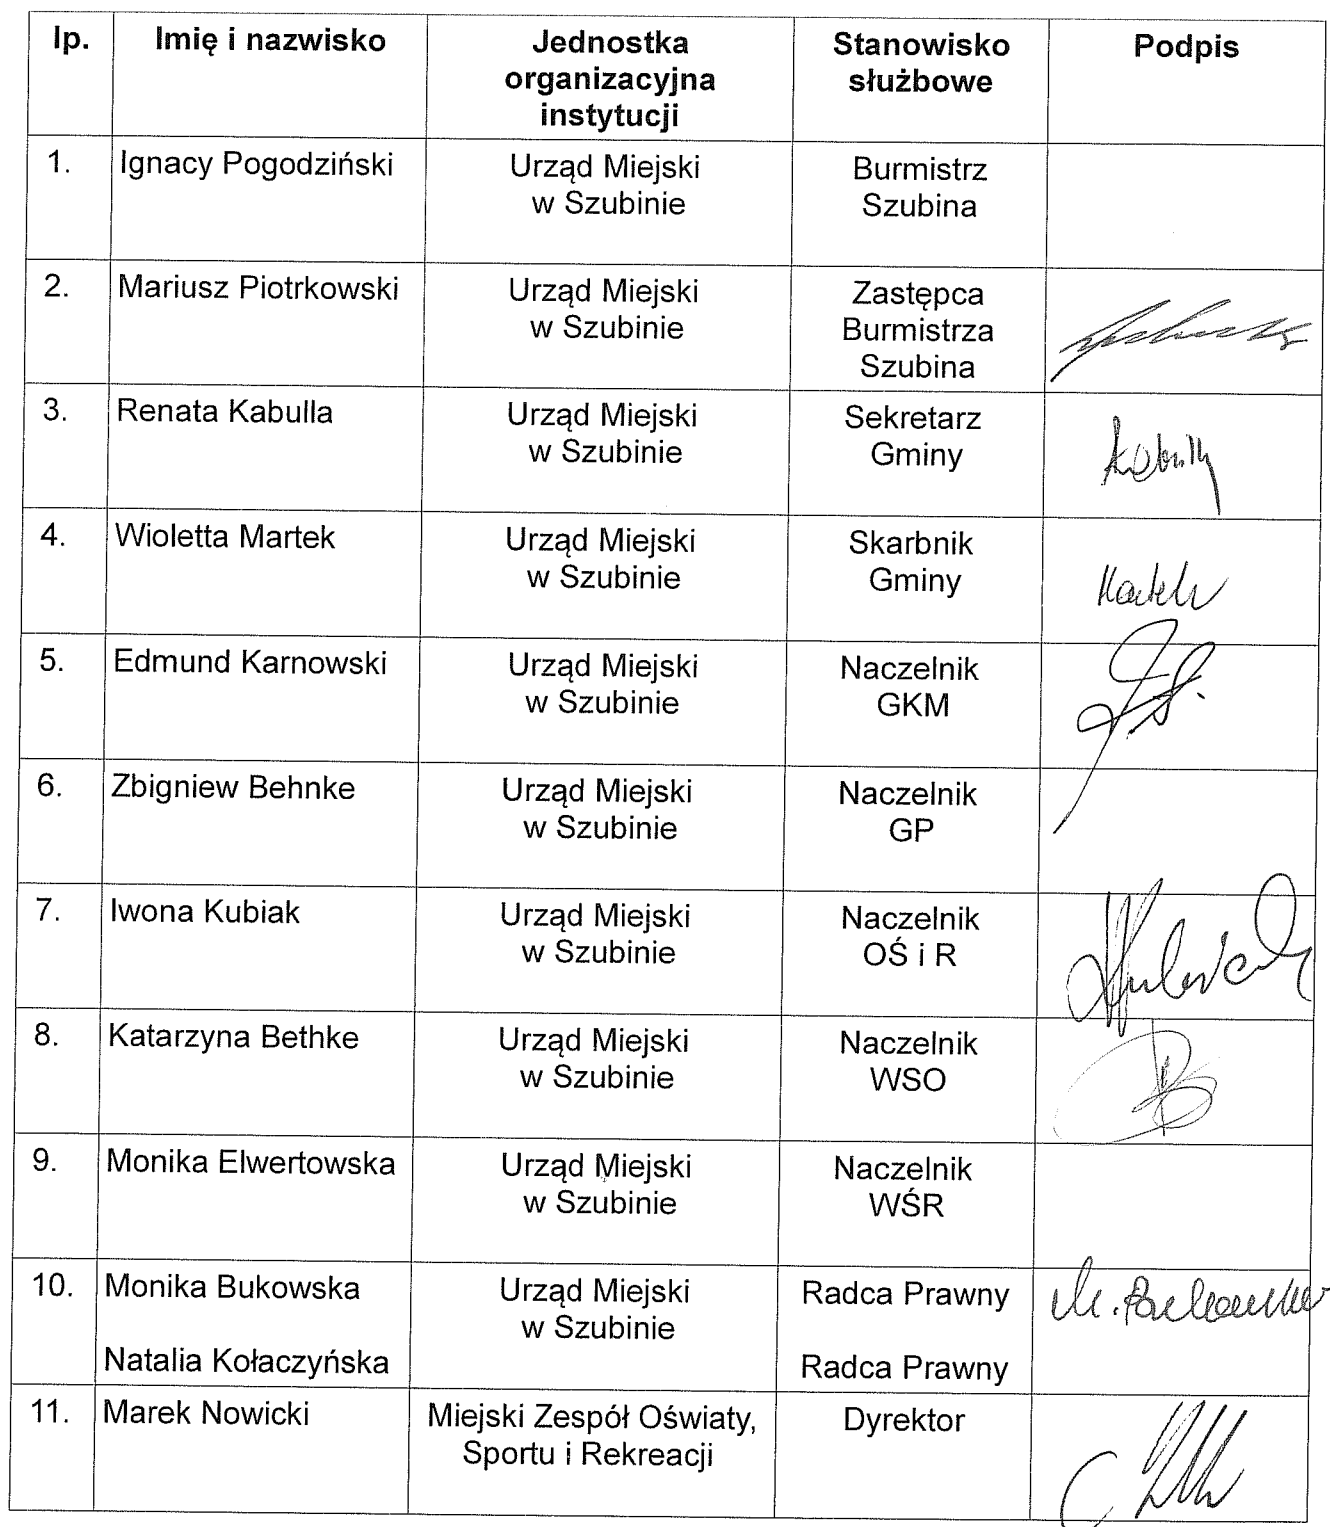 lp.
Imię i nazwisko
Jednostka
organizacyjna
instytucji
Stanowisko
służbowe
Podpis
1.
Ignacy Pogodziński
Urząd Miejski
w Szubinie
Burmistrz
Szubina
2.
Mariusz Piotrkowski
Urząd Miejski
w Szubinie
Zastępca
Burmistrza
Szubina
3.
Renata Kabulla
Urząd Miejski
w Szubinie
Sekretarz
Gminy
4.
Wioletta Martek
Urząd Miejski
w Szubinie
Skarbnik
Gminy
Martek
5.
Edmund Karnowski
Urząd Miejski
w Szubinie
Naczelnik
GKM
6.
Zbigniew Behnke
Urząd Miejski
w Szubinie
Naczelnik
GP
7.
Iwona Kubiak
Urząd Miejski
w Szubinie
Naczelnik
OŚ i R
8.
Katarzyna Bethke
Urząd Miejski
w Szubinie
Naczelnik
WSO
9.
Monika Elwertowska
Urząd Miejski
w Szubinie
Naczelnik
WŚR
10.
Monika Bukowska
Urząd Miejski
w Szubinie
Radca Prawny
M. Bukowska
Natalia Kołaczyńska
Radca Prawny
11.
Marek Nowicki
Miejski Zespół Oświaty,
Sportu i Rekreacji
Dyrektor